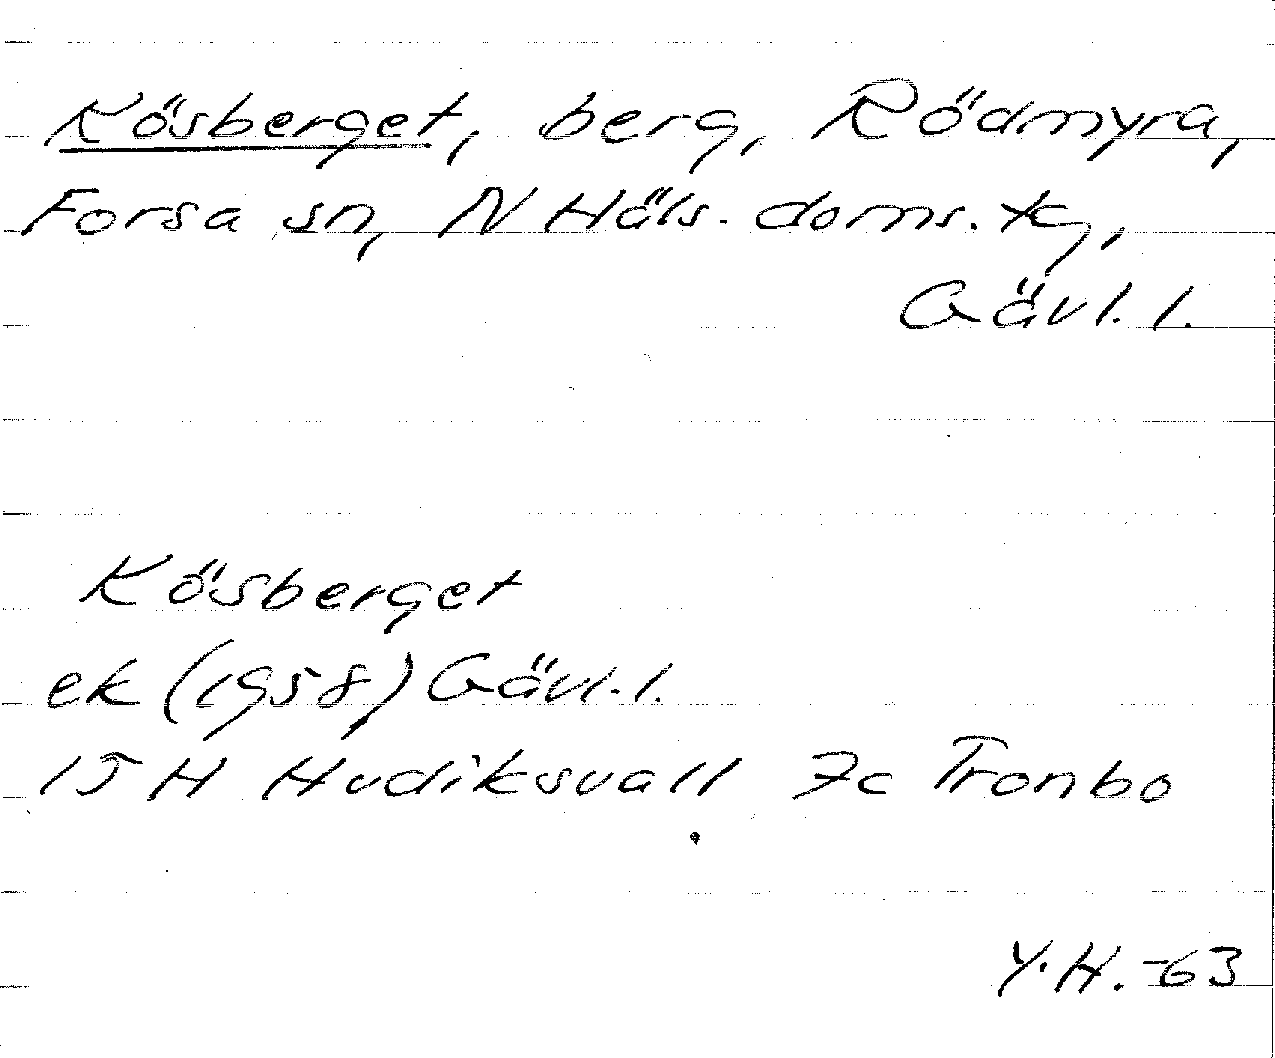 Kösberget, berg, Rödmyra,
Forsa sn, N Häls. doms. tg,
Gävl. l.
Kösberget
ek (1958) Gävl. l.
15 H Hudiksvall 7c Tronbo
Y.H. -63